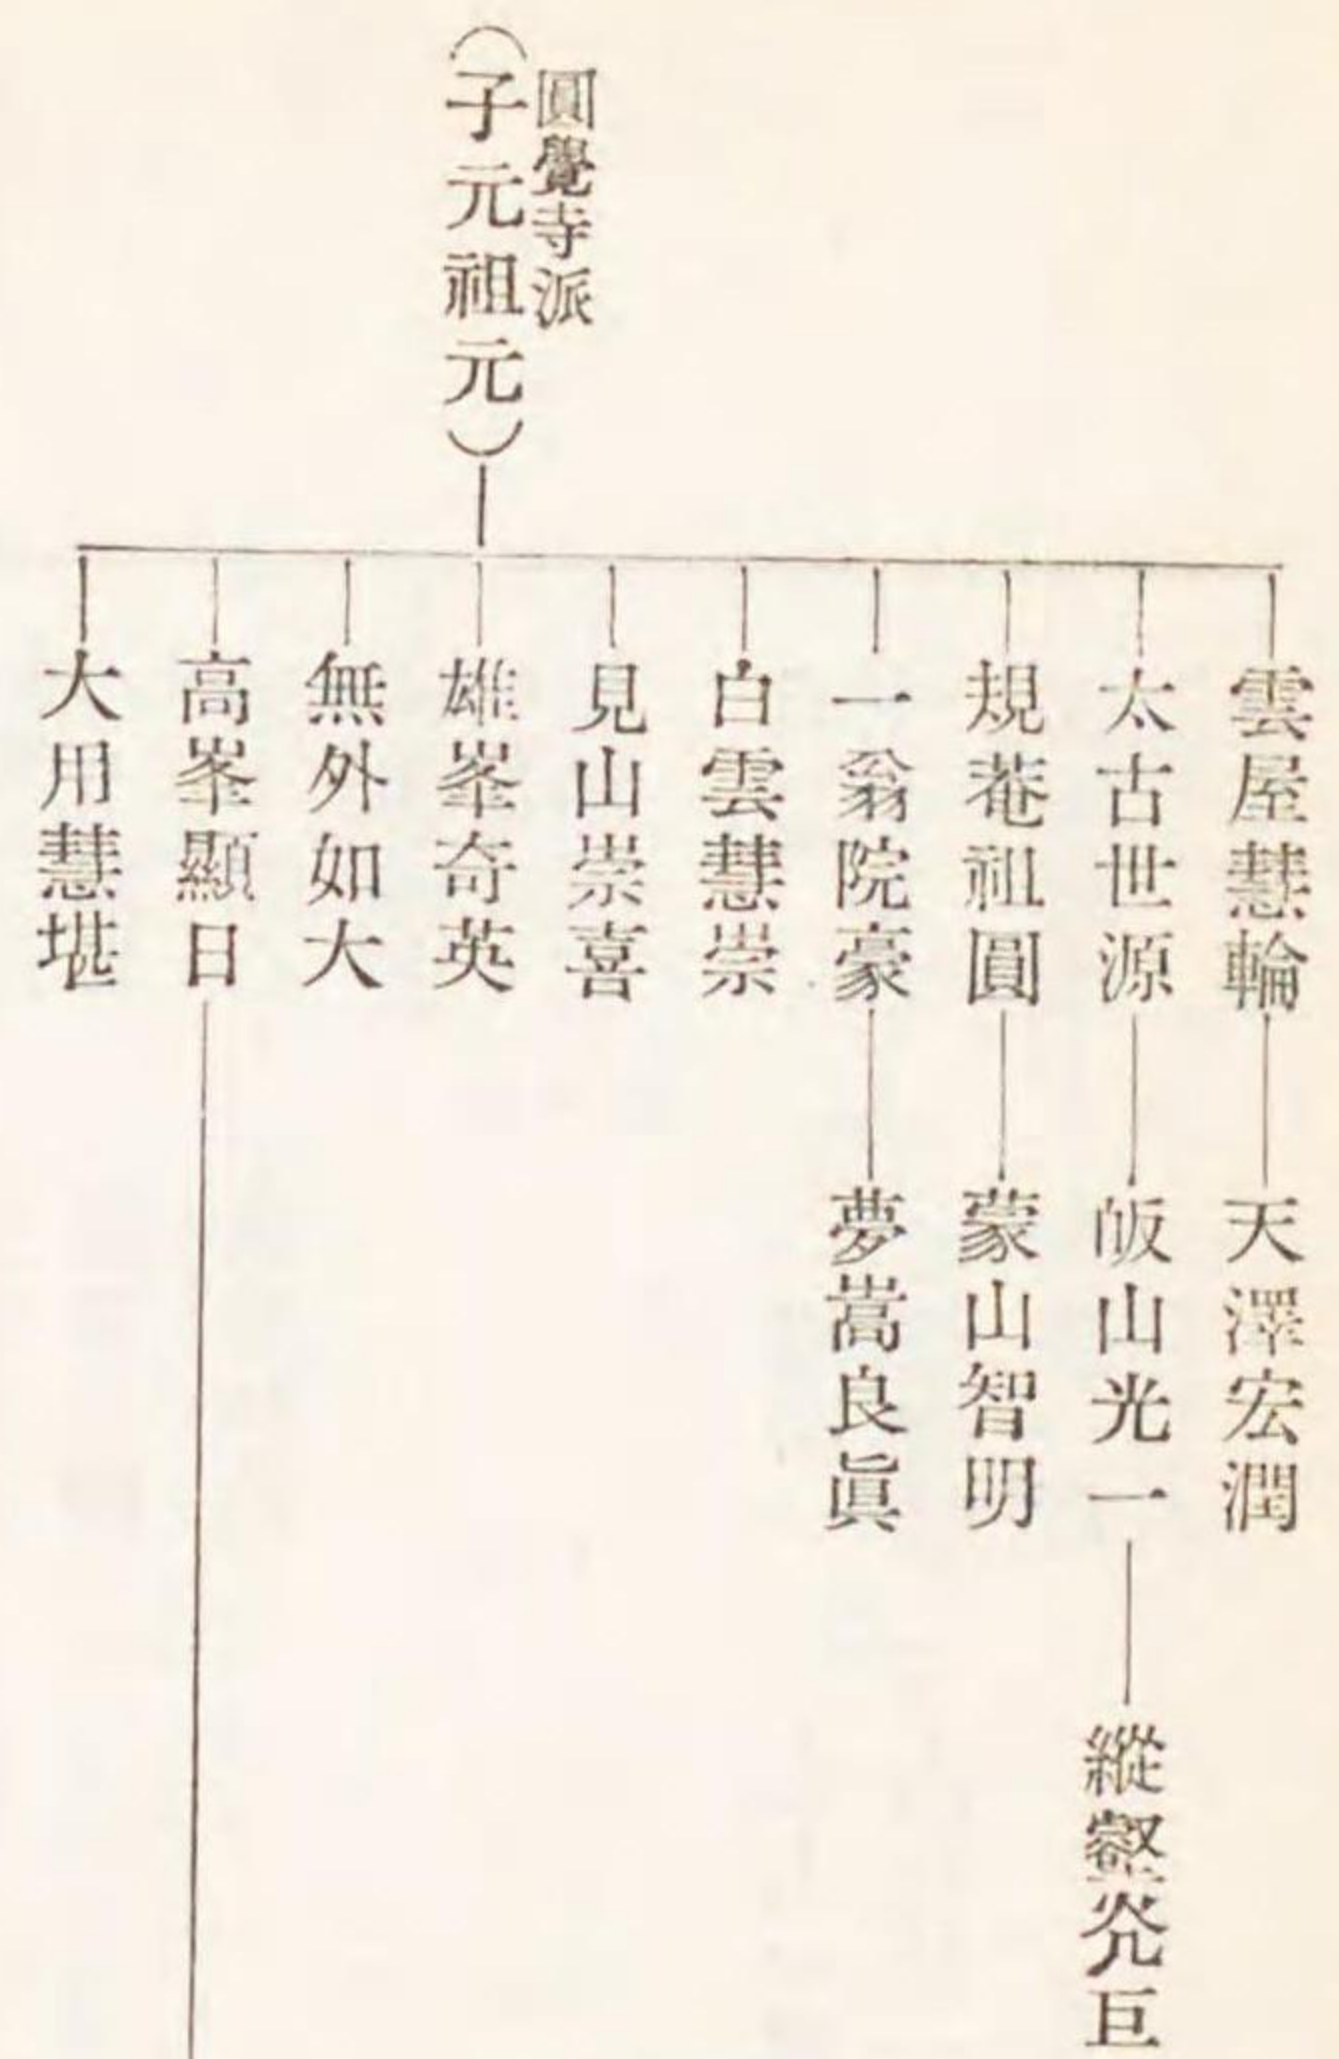 圓覺寺派
（子元祖元）
雲屋慧輪
天澤宏潤
太古世源
皈山光一
縱壑巨
規菴祖圓
蒙山智明
一翁院豪
夢嵩良眞
白雲慧崇
見山崇喜
雄峯奇英
無外如大
高峯顯日
大用慧堪